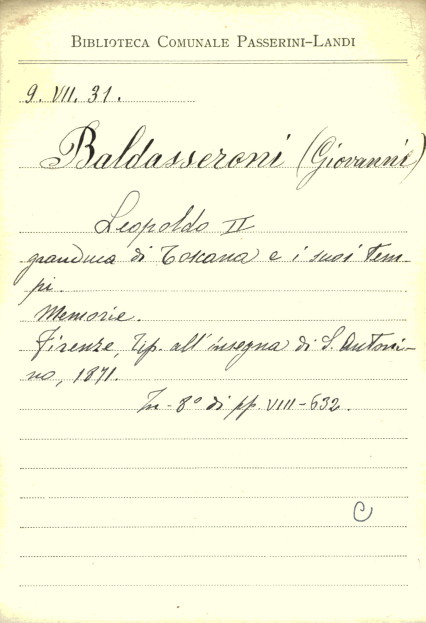 BIBLIOTECA COMUNALE PASSERINI-LANDI
9. VII. 31.
Baldasseroni (Giovanni)
Leopoldo II
granduca di Toscana e i suoi tem-
pi.
Memorie.
Firenze, tip. all'insegna di S. Antoni-
no, 1871.
In-8° di pp. VIII-632.
C